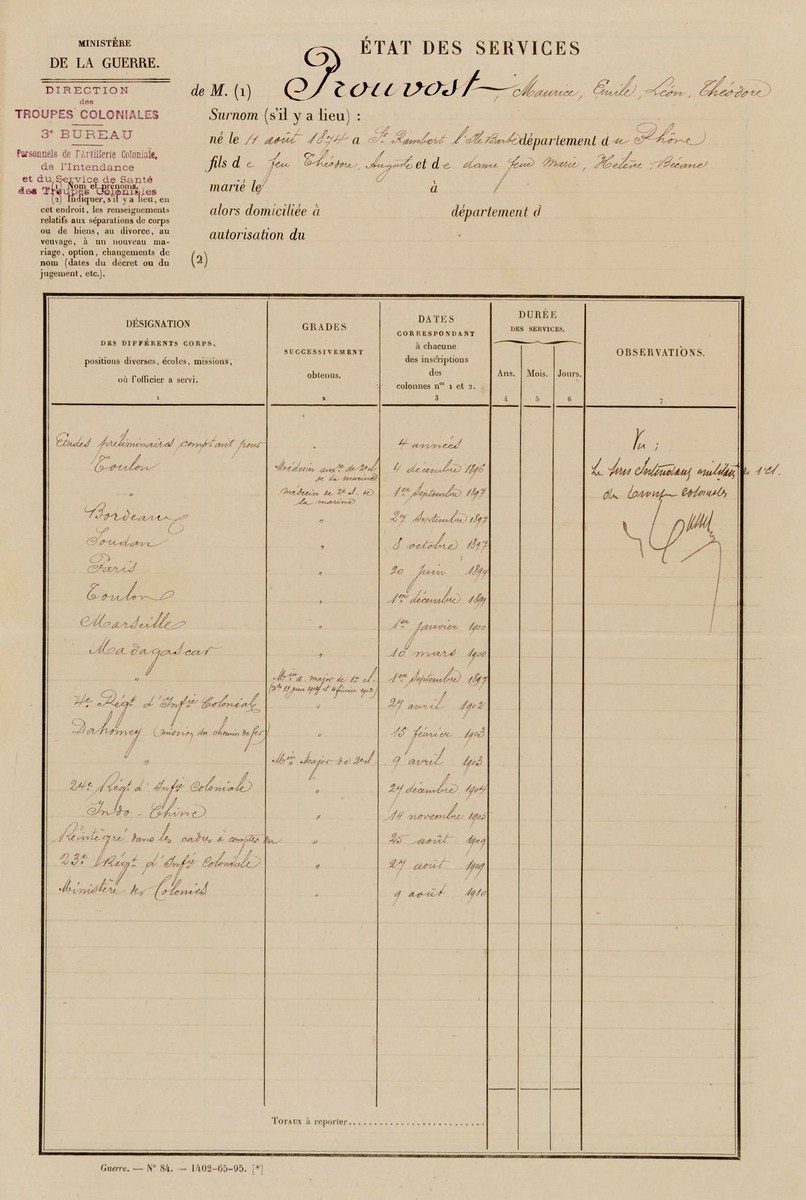 MINISTÈRE
DE LA GUERRE.
DIRECTION
des
TROUPES COLONIALES
3e BUREAU
Personnels de l'Artillerie Coloniale,
de l'Intendance
et du Service de Santé
des Troupes Coloniales
(1) Nom et prénoms.
(2) Indiquer, s'il y a lieu, en
cet endroit, les renseignements
relatifs aux séparations de corps
ou de biens, au divorce, au
veuvage, à un nouveau ma-
riage, option, changements de
nom (dates du décret ou du
jugement, etc.).
ÉTAT DES SERVICES
de M. (1) Prouvost, Maurice, Emile, Léon, Théodore
Surnom (s'il y a lieu) :
né le 11 août 1874 a St Rambert l'Ile Barbe département du Rhône
fils de feu Théodore, Auguste et de dame feue Marie, Hélène
marié le à
alors domiciliée à département d
autorisation du
(2)
DÉSIGNATION
DES DIFFÉRENTS CORPS,
positions diverses, écoles, missions,
où l'officier a servi.
1
GRADES
SUCCESSIVEMENT
obtenus.
2
DATES
CORRESPONDANT
à chacune
des inscriptions
des
colonnes nos 1 et 2.
3
DURÉE
DES SERVICES.
Ans. Mois. Jours.
4 5 6
OBSERVATIONS.
7
Etudes préliminaires comptant pour 4 années
Toulon Médecin auxre de 2e cl de la marine 4 décembre 1896
" Médecin de 2e cl. de la marine 1er Septembre 1897
Bordeaux " 27 Septembre 1897
Soudan " 8 octobre 1897
Paris " 20 Juin 1899
Toulon " 1er décembre 1899
Marseille " 1er Janvier 1900
Madagascar " 10 mars 1900
" Min a. major de 1e cl. 1er Septembre 1897
4e Régt d'Infie Coloniale " 27 avril 1902
Dahomey (mission du chemin de fer) " 15 février 1903
" Min Major de 2e cl 9 avril 1903
24e Régt d'Infie Coloniale " 27 décembre 1904
Indo-Chine " 14 novembre 1905
Réintégré dans les cadres à compter du " 25 août 1909
23e Régt d'Infie Coloniale " 27 août 1909
Ministère des Colonies " 9 août 1910
Vu :
Le Sous Intendant militaire de 1 cl.
des troupes coloniales
TOTAUX à reporter
Guerre. — N° 84. — 1402-65-95. [*]